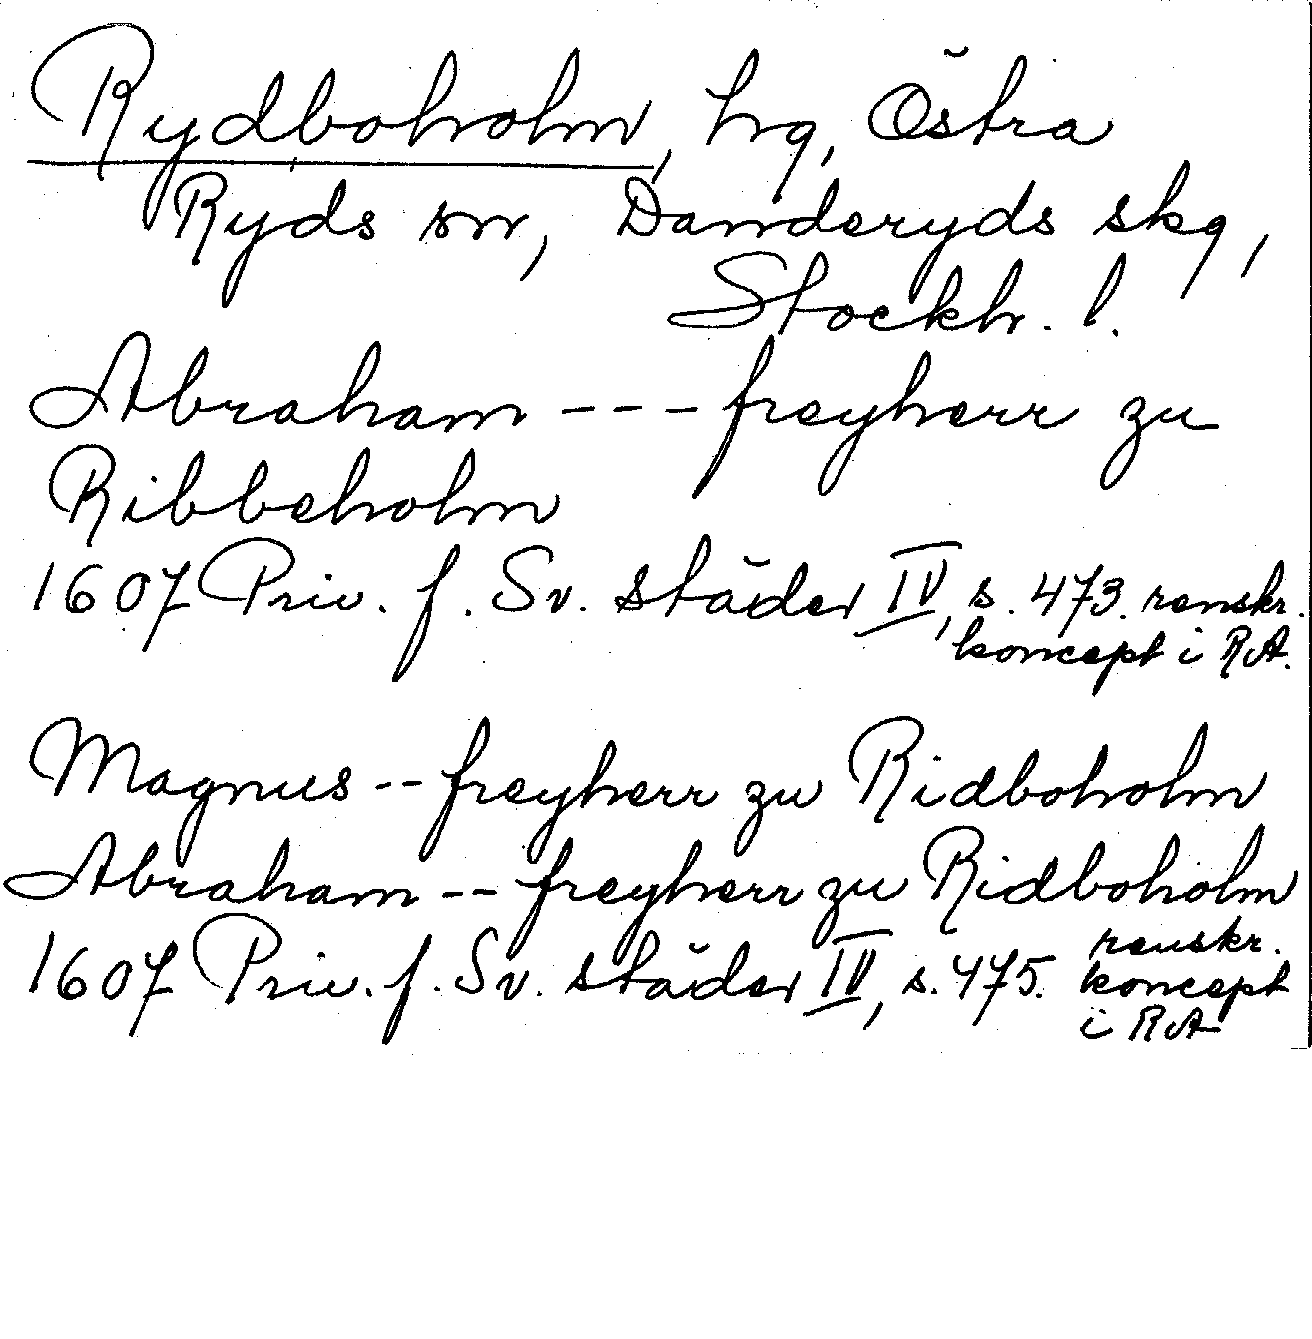 Rydboholm, hg, Östra
Ryds sn, Danderyds skg,
Stockh. l.
Abraham --- freyherr zu
Ribbeholm
1607 Priv. f. Sv. städer IV, s. 473. renskr.
koncept i RA.
Magnus -- freyherr zu Ridboholm
Abraham -- freyherr zu Ridboholm
1607 Priv. f. Sv. städer IV, s. 475. renskr.
koncept
i RA